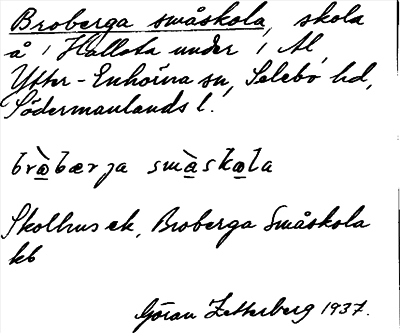 Broberga småskola, skola
å 1 Hallsta under 1 Al,
Ytter-Enhörna sn, Selebo hd,
Södermanlands l.
bro̱bærja små̱sko̱la
Skolhus ek, Broberga Småskola
kb
Göran Zetterberg 1937.